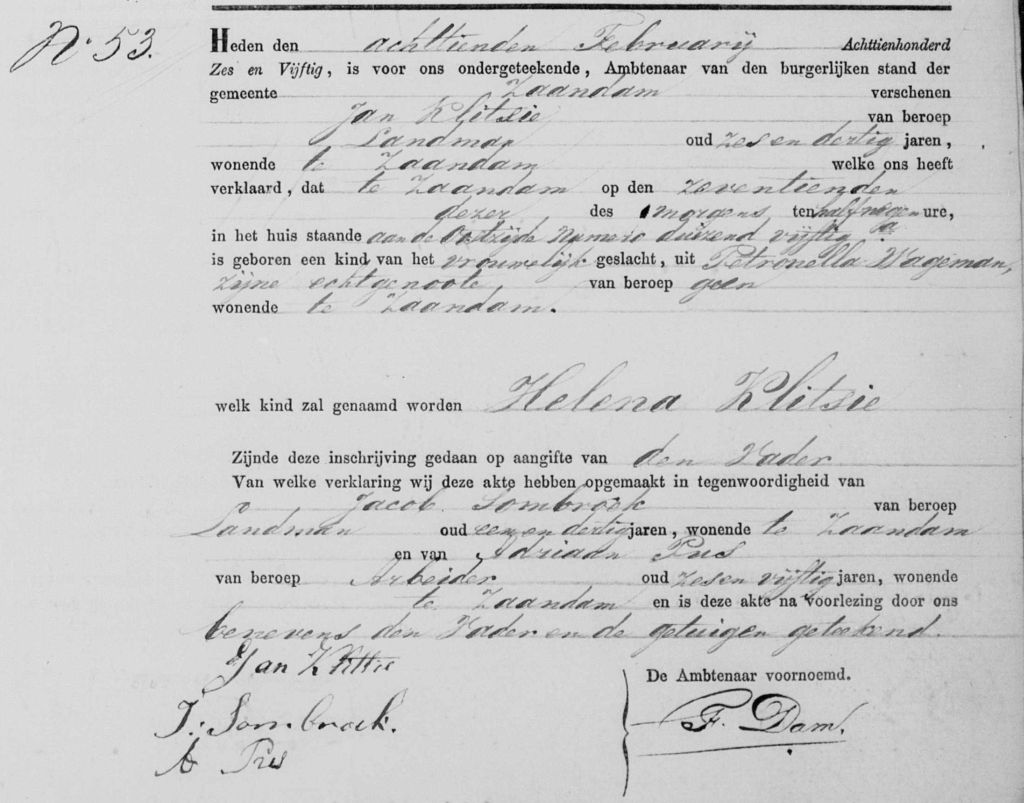 No 53.
Heden den achttienden Februarij Achttienhonderd
Zes en Vijftig, is voor ons ondergeteekende, Ambtenaar van den burgerlijken stand der
gemeente Zaandam verschenen
Jan Klitsie van beroep
Landman oud zes en dertig jaren,
wonende te Zaandam welke ons heeft
verklaard, dat te Zaandam op den zeventienden
dezer des morgens ten half negen ure,
in het huis staande aan de Oostzijde Numero duizend vijftig a
is geboren een kind van het vrouwelijk geslacht, uit Petronella Wageman,
zijne echtgenoote, van beroep geen
wonende te Zaandam.
welk kind zal genaamd worden Helena Klitsie
Zijnde deze inschrijving gedaan op aangifte van den Vader
Van welke verklaring wij deze akte hebben opgemaakt in tegenwoordigheid van
Jacob Sombroek van beroep
Landman oud een en dertig jaren, wonende te Zaandam
en van Adriaan Pus
van beroep Arbeider oud zes en vijftig jaren, wonende
te Zaandam en is deze akte na voorlezing door ons
benevens den Vader en de getuigen geteekend.
Jan Klitsie
De Ambtenaar voornoemd.
J. Sombroek.
F. Dam.
A Pus